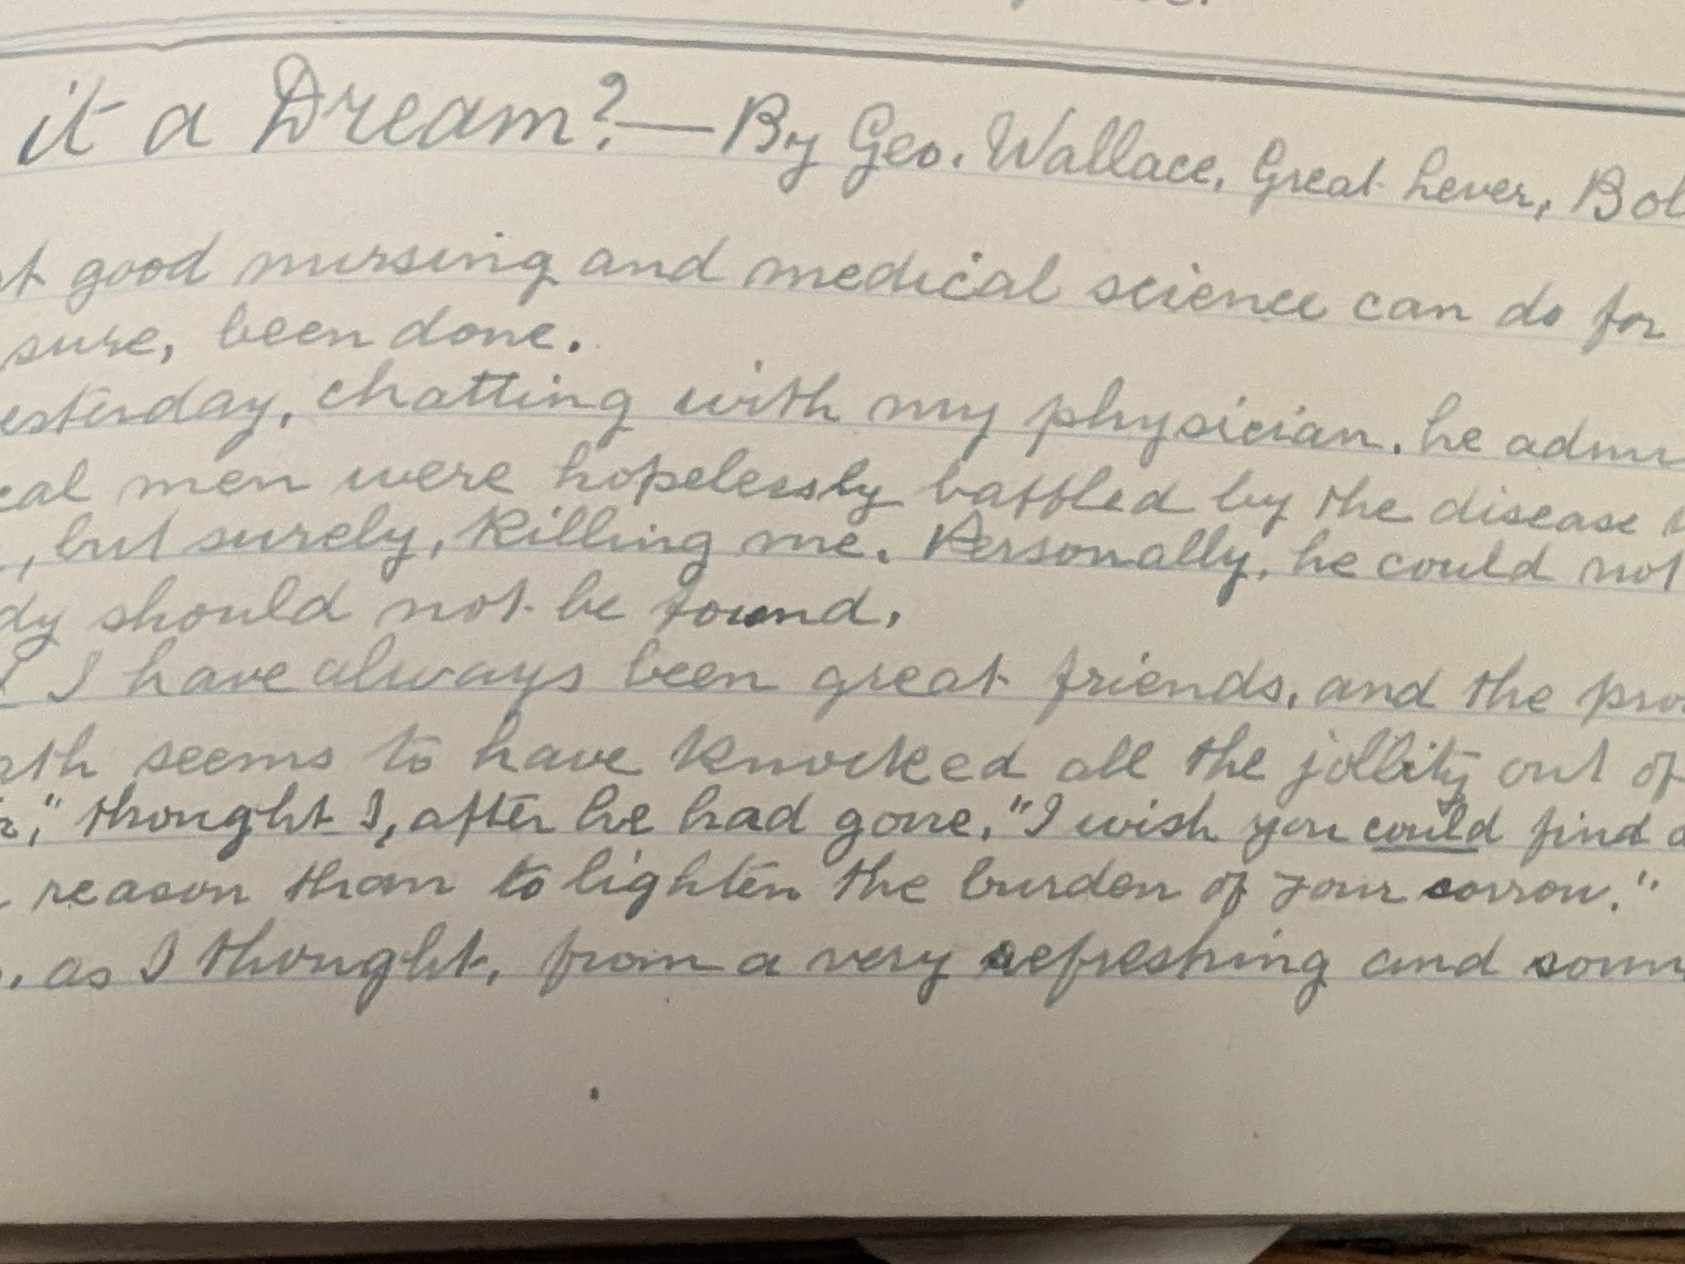 it a Dream? — By Geo. Wallace, Great Lever, Bol
good nursing and medical science can do for
sure, been done.
esterday, chatting with my physician, he admi
cal men were hopelessly baffled by the disease
, but surely, killing me. Personally, he could not
dy should not be found.
I have always been great friends, and the pro
ath seems to have knocked all the jollity out of
," thought I, after he had gone, "I wish you could find a
reason than to lighten the burden of your sorrow."
, as I thought, from a very refreshing and soun